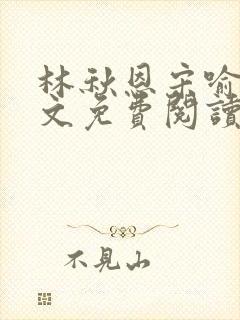 林秋恩宋喻
文免費閱讀
不見山